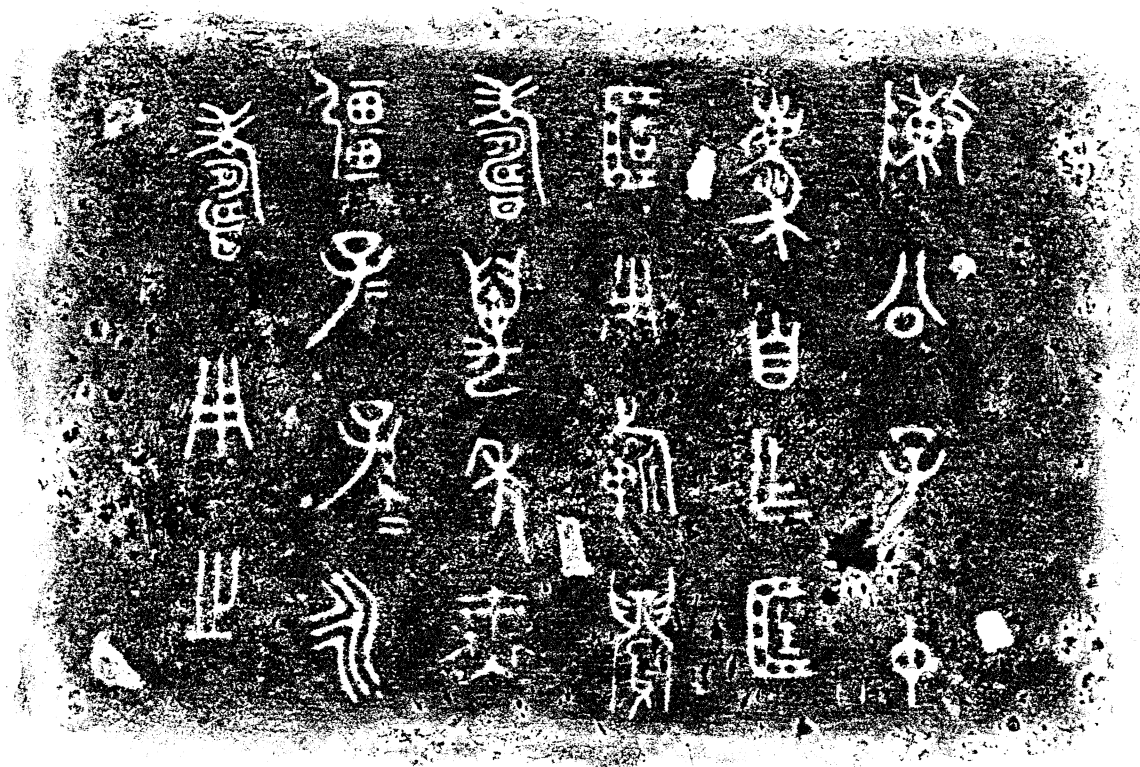 陳公子中
慶自乍匡
簠用祈眉
壽萬年無
疆子=孫=永
壽用之